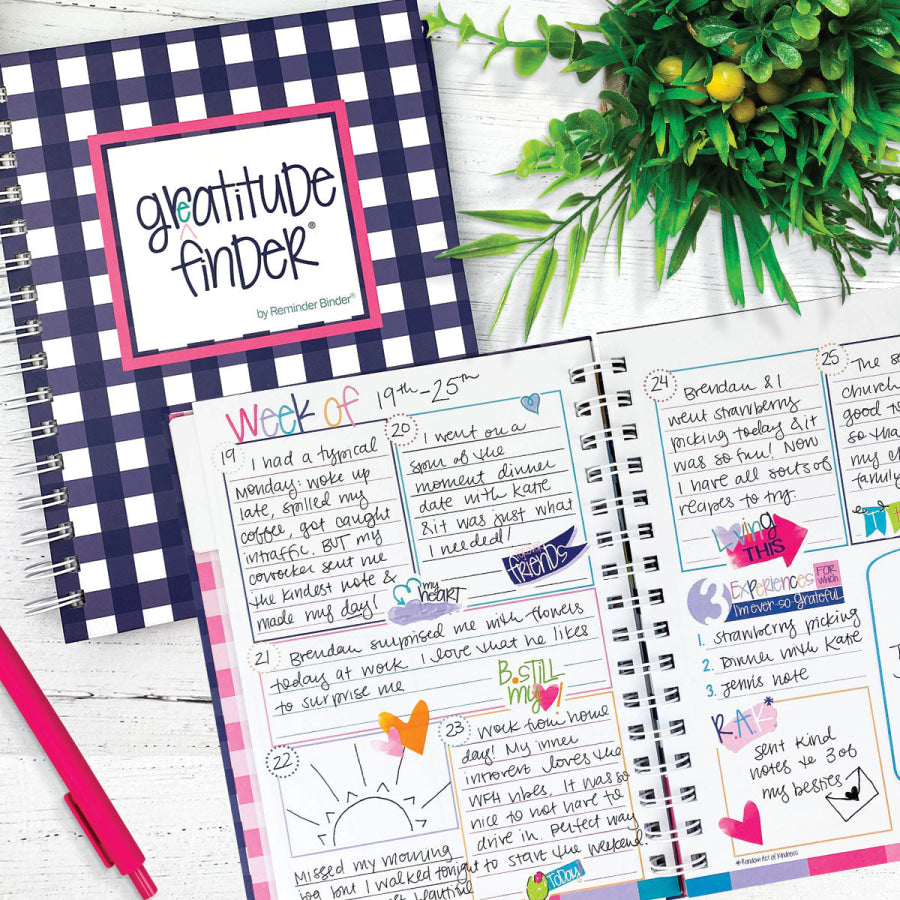 greatitude
finder®
by Reminder Binder®
Week of 19th-25th
19
I had a typical
Monday: woke up
late, spilled my
coffee, got caught
in traffic. BUT my
coworker sent me
the kindest note &
made my day!
my
heart
20
I went on a
spur of the
moment dinner
date with Katie
& it was just what
I needed!
friends
21
Brendan surprised me with flowers
today at work. I love that he likes
to surprise me
B.STILL
my !
22
Missed my morning
jog but I walked tonight
23
Work from home
day! My inner
introvert loves the
WFH vibes. It was so
nice to not have to
drive in. Perfect way
to start the weekend.
TODAY!
24
Brendan & I
went strawberry
picking today & it
was so fun! Now
I have all sorts of
recipes to try.
Loving
THIS
25
The
church
good
so tha
my
family
3 Experiences FOR which
I'm ever-so-grateful
1. strawberry picking
2. Dinner with Katie
3. Jenni's note
R.A.K*
sent kind
notes to 3 of
my besties
* Random Act of Kindness